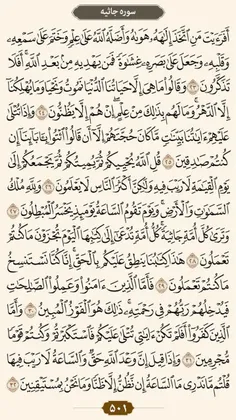 سوره جاثیه
أَفَرَءَيْتَ مَنِ ٱتَّخَذَ إِلَٰهَهُۥ هَوَىٰهُ وَأَضَلَّهُ ٱللَّهُ عَلَىٰ عِلْمٍ وَخَتَمَ عَلَىٰ سَمْعِهِۦ
وَقَلْبِهِۦ وَجَعَلَ عَلَىٰ بَصَرِهِۦ غِشَٰوَةً فَمَن يَهْدِيهِ مِنۢ بَعْدِ ٱللَّهِ أَفَلَا
تَذَكَّرُونَ ٢٣ وَقَالُوا۟ مَا هِىَ إِلَّا حَيَاتُنَا ٱلدُّنْيَا نَمُوتُ وَنَحْيَا وَمَا يُهْلِكُنَآ
إِلَّا ٱلدَّهْرُ وَمَا لَهُم بِذَٰلِكَ مِنْ عِلْمٍ إِنْ هُمْ إِلَّا يَظُنُّونَ ٢٤ وَإِذَا تُتْلَىٰ
عَلَيْهِمْ ءَايَٰتُنَا بَيِّنَٰتٍ مَّا كَانَ حُجَّتَهُمْ إِلَّآ أَن قَالُوا۟ ٱئْتُوا۟ بِـَٔابَآئِنَآ إِن
كُنتُمْ صَٰدِقِينَ ٢٥ قُلِ ٱللَّهُ يُحْيِيكُمْ ثُمَّ يُمِيتُكُمْ ثُمَّ يَجْمَعُكُمْ إِلَىٰ
يَوْمِ ٱلْقِيَٰمَةِ لَا رَيْبَ فِيهِ وَلَٰكِنَّ أَكْثَرَ ٱلنَّاسِ لَا يَعْلَمُونَ ٢٦ وَلِلَّهِ مُلْكُ
ٱلسَّمَٰوَٰتِ وَٱلْأَرْضِ وَيَوْمَ تَقُومُ ٱلسَّاعَةُ يَوْمَئِذٍ يَخْسَرُ ٱلْمُبْطِلُونَ ٢٧
وَتَرَىٰ كُلَّ أُمَّةٍ جَاثِيَةً كُلُّ أُمَّةٍ تُدْعَىٰٓ إِلَىٰ كِتَٰبِهَا ٱلْيَوْمَ تُجْزَوْنَ مَا كُنتُمْ
تَعْمَلُونَ ٢٨ هَٰذَا كِتَٰبُنَا يَنطِقُ عَلَيْكُم بِٱلْحَقِّ إِنَّا كُنَّا نَسْتَنسِخُ
مَا كُنتُمْ تَعْمَلُونَ ٢٩ فَأَمَّا ٱلَّذِينَ ءَامَنُوا۟ وَعَمِلُوا۟ ٱلصَّٰلِحَٰتِ
فَيُدْخِلُهُمْ رَبُّهُمْ فِى رَحْمَتِهِۦ ذَٰلِكَ هُوَ ٱلْفَوْزُ ٱلْمُبِينُ ٣٠ وَأَمَّا
ٱلَّذِينَ كَفَرُوٓا۟ أَفَلَمْ تَكُنْ ءَايَٰتِى تُتْلَىٰ عَلَيْكُمْ فَٱسْتَكْبَرْتُمْ وَكُنتُمْ قَوْمًا
مُّجْرِمِينَ ٣١ وَإِذَا قِيلَ إِنَّ وَعْدَ ٱللَّهِ حَقٌّ وَٱلسَّاعَةُ لَا رَيْبَ فِيهَا
قُلْتُم مَّا نَدْرِى مَا ٱلسَّاعَةُ إِن نَّظُنُّ إِلَّا ظَنًّا وَمَا نَحْنُ بِمُسْتَيْقِنِينَ ٣٢
٥٠١